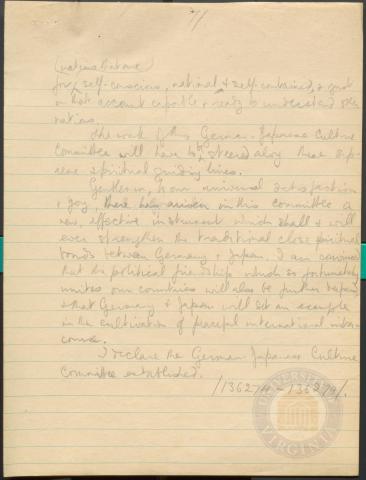 7/
(nations that are
for, self-conscious, national & self-contained, & just
on that account capable & ready to understand other
nations.
The work of this German-Japanese Culture
Committee will have to be steered along these
spiritual guiding lines.
Gentlemen, to our universal satisfaction
& joy, there has arisen in this committee a
new, effective instrument which shall & will
ever strengthen the traditional close spiritual
bonds between Germany & Japan. I am convinced
that the political friendship which so fortunately
unites our countries will also be further
& that Germany & Japan will set an example
in the cultivation of peaceful international inter-
course.
I declare the German-Japanese Culture
Committee established.
/136274 - 136279/.
UNIVERSITY OF VIRGINIA